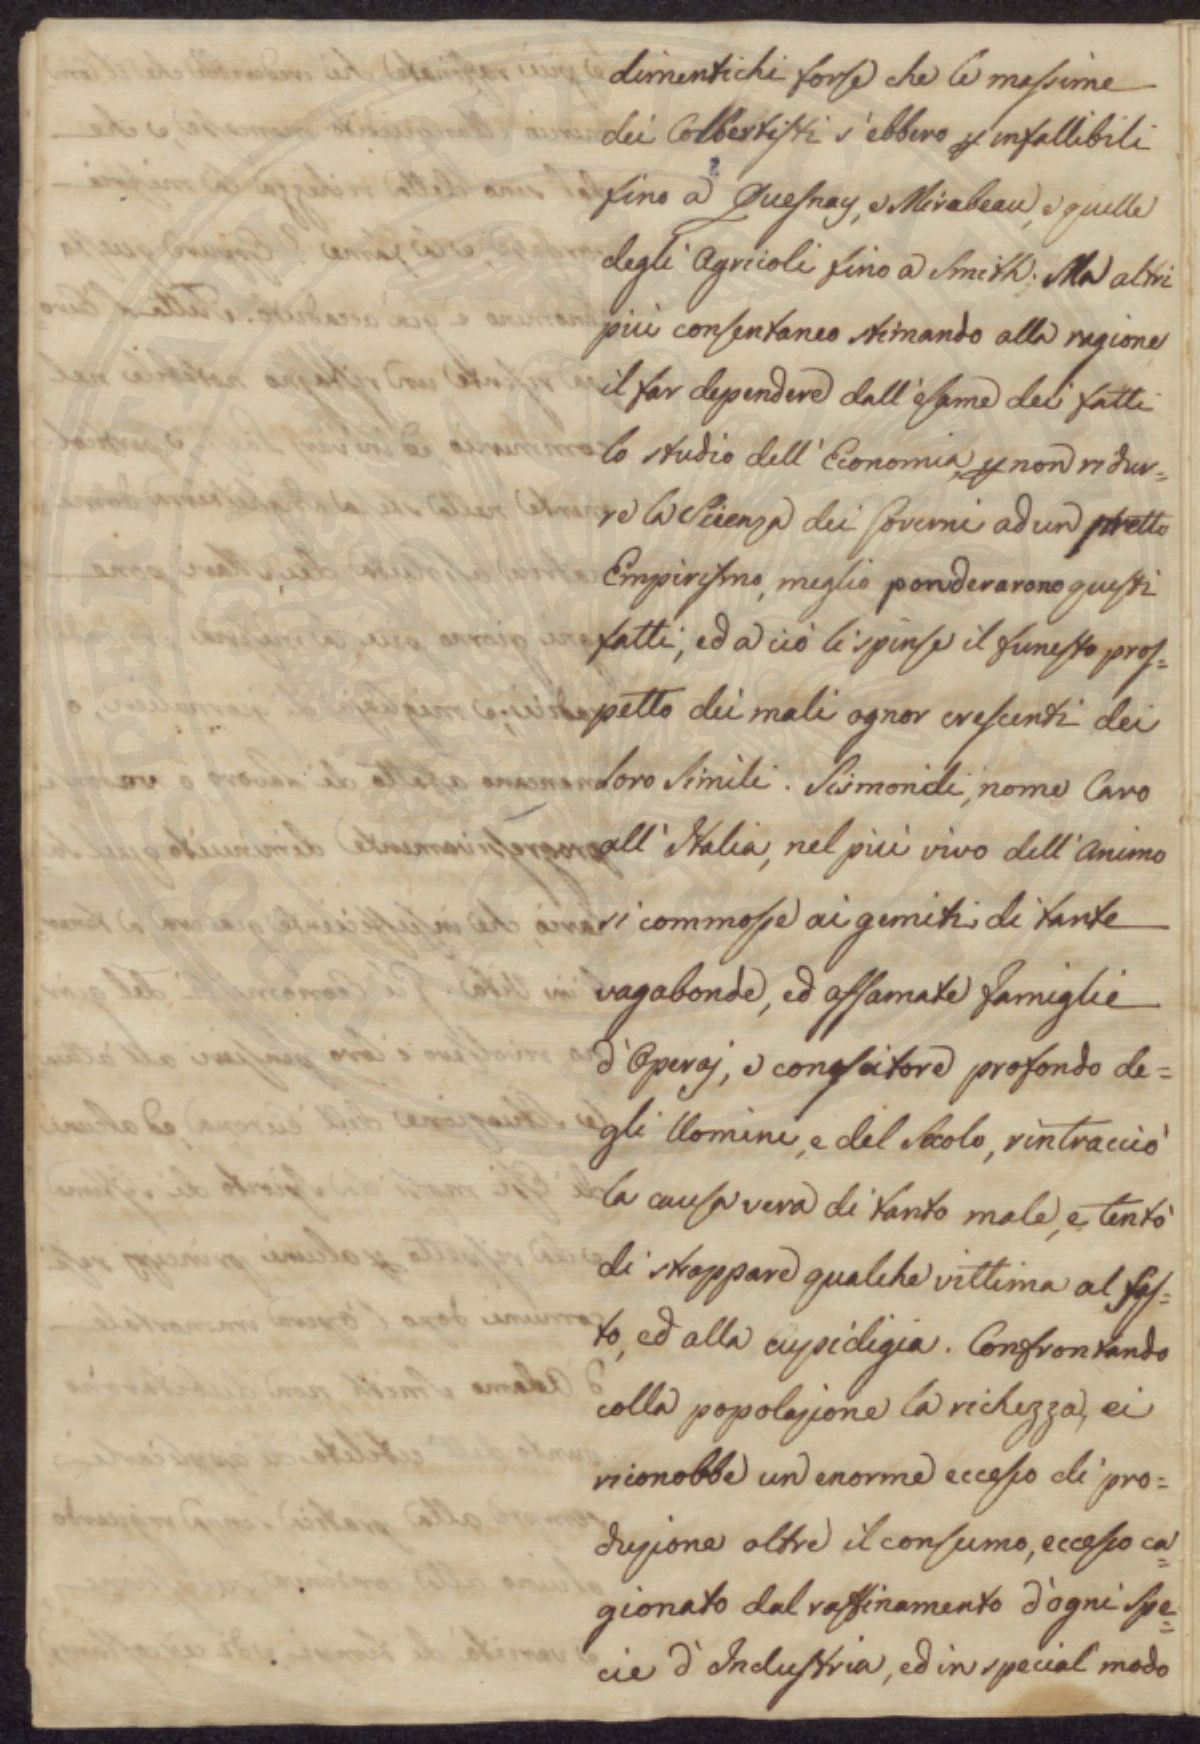 dimentichi forse che le massime
dei Colbertisti s'ebbero p infallibili
fino a Quesnay, e Mirabeau, e quelle
degli Agricioli fino a Smith. Ma altri
più consentaneo stimando alla ragione
il far dependere dall'esame dei fatti
lo studio dell'Economia, p non ridur=
re la Scienza dei Governi ad un pretto
Empirismo, meglio ponderarono questi
fatti, ed a ciò li spinse il funesto pros=
petto dei mali ognor crescenti dei
loro Simili. Sismondi, nome Caro
all'Italia, nel più vivo dell'Animo
si commosse ai gemiti di tante
vagabonde, ed affamate famiglie
d'Operaj, e conoscitore profondo de=
gli Uomini, e del Secolo, rintracciò
la causa vera di tanto male, e tentò
di strappare qualche vittima al fas=
to, ed alla cupidigia. Confrontando
colla popolazione la richezza, ei
riconobbe un enorme eccesso di pro=
duzione oltre il consumo, eccesso ca=
gionato dal raffinamento d'ogni Spe=
cie d'Industria, ed in special modo